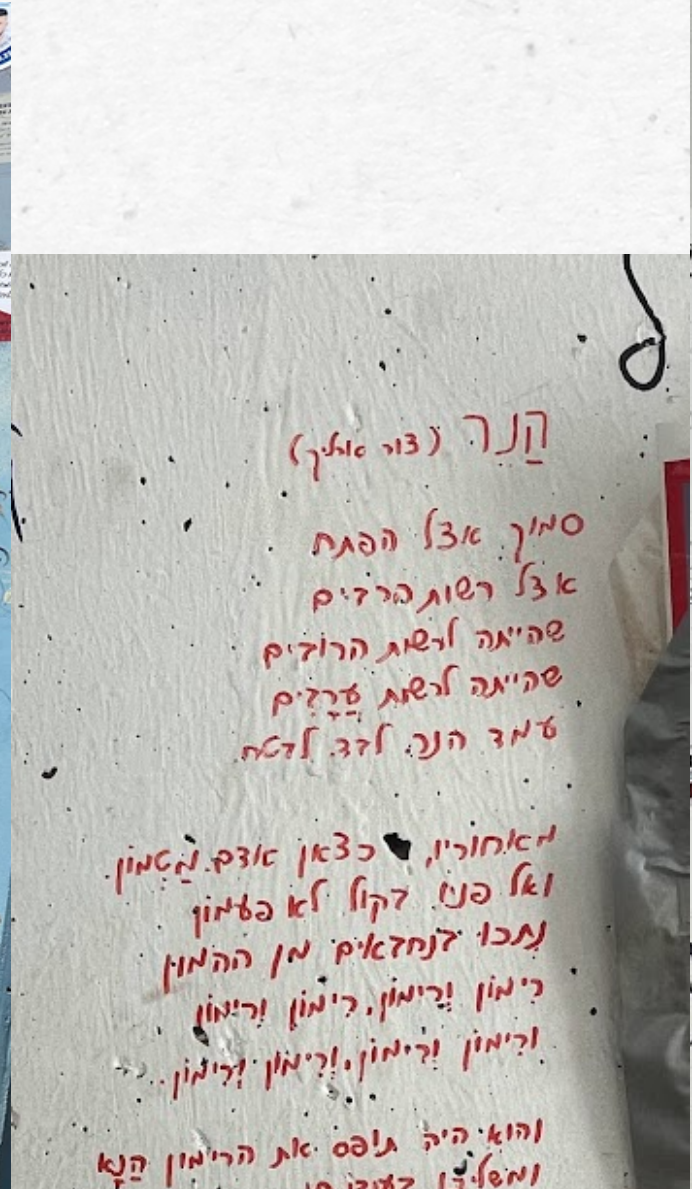 הַנֵּר (צור אורליך)
סמוך אצל הפתח
אצל רשות הרבים
שהייתה לרשות הרובים
שהייתה לרשות עֲרָבִים
עמד הנר לבד לבטח.
מאחוריו, כצאן אדם מַטְמוֹן.
ואל פניו בקול לא פעמון
נִתכו בנחבאים מן ההמון
רימוֹן וְרימוֹן, רימוֹן וְרימוֹן
ורימוֹן וְרימוֹן, וְרימוֹן וְרימוֹן...
והוא היה תופס את הרימון הַנָּא